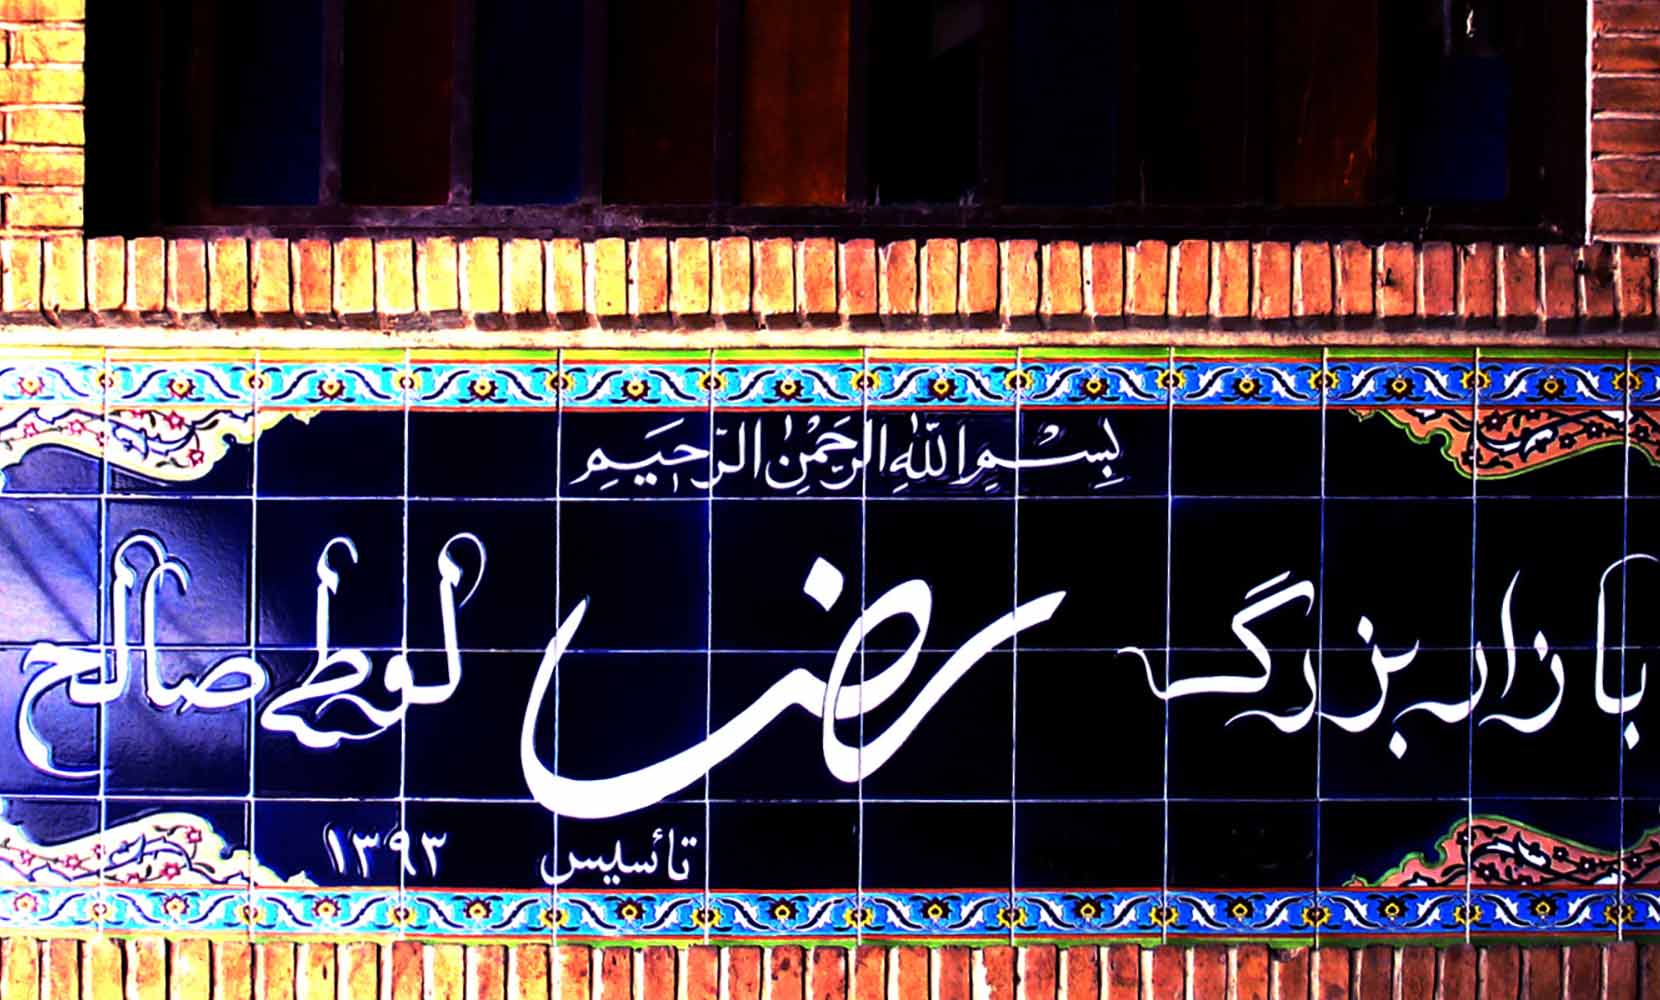 بِسْمِ اللهِ الرَّحْمٰنِ الرَّحیمِ
بازار بزرگ رضا لوطی صالح
تأسیس ۱۳۹۳